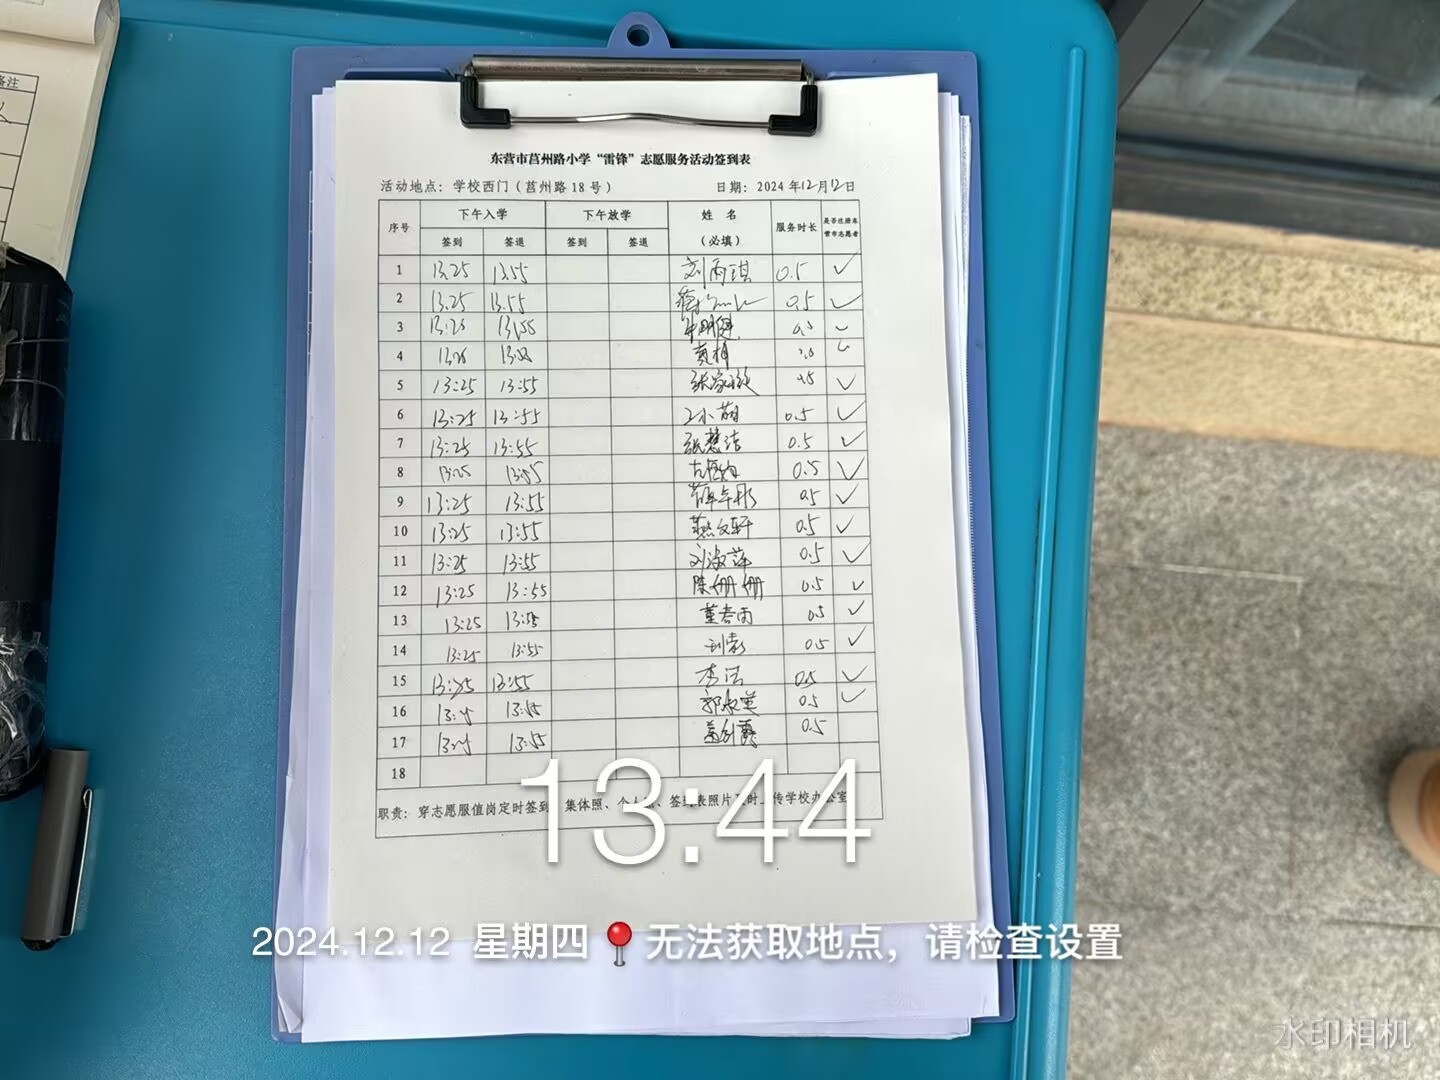 备注
东营市莒州路小学“雷锋”志愿服务活动签到表
活动地点：学校西门（莒州路18号） 日期：2024年12月12日
序号 下午入学 下午放学 姓名（必填） 服务时长 是否注册东营市志愿者
签到 签退 签到 签退
1 13:25 13:55 刘雨琪 0.5 ✓
2 13:25 13:55 0.5 ✓
3 13:25 13:55 0.5 ✓
4 黄梅 ✓
5 13:25 13:55 0.5 ✓
6 13:25 13:55 王小萌 0.5 ✓
7 13:25 13:55 张慧洁 0.5 ✓
8 13:25 13:55 0.5 ✓
9 13:25 13:55 0.5 ✓
10 13:25 13:55 燕文轩 0.5 ✓
11 13:25 13:55 刘淑萍 0.5 ✓
12 13:25 13:55 陈姗姗 0.5 ✓
13 13:25 13:55 董春雨 0.5 ✓
14 13:25 13:55 0.5 ✓
15 13:25 13:55 李洁 0.5 ✓
16 13:25 13:55 0.5 ✓
17 13:25 13:55 0.5
18
职责：穿志愿服值岗定时签到 集体照、个人 、签 表照片 时上传学校办公室
13:44
2024.12.12 星期四 📍无法获取地点，请检查设置
水印相机